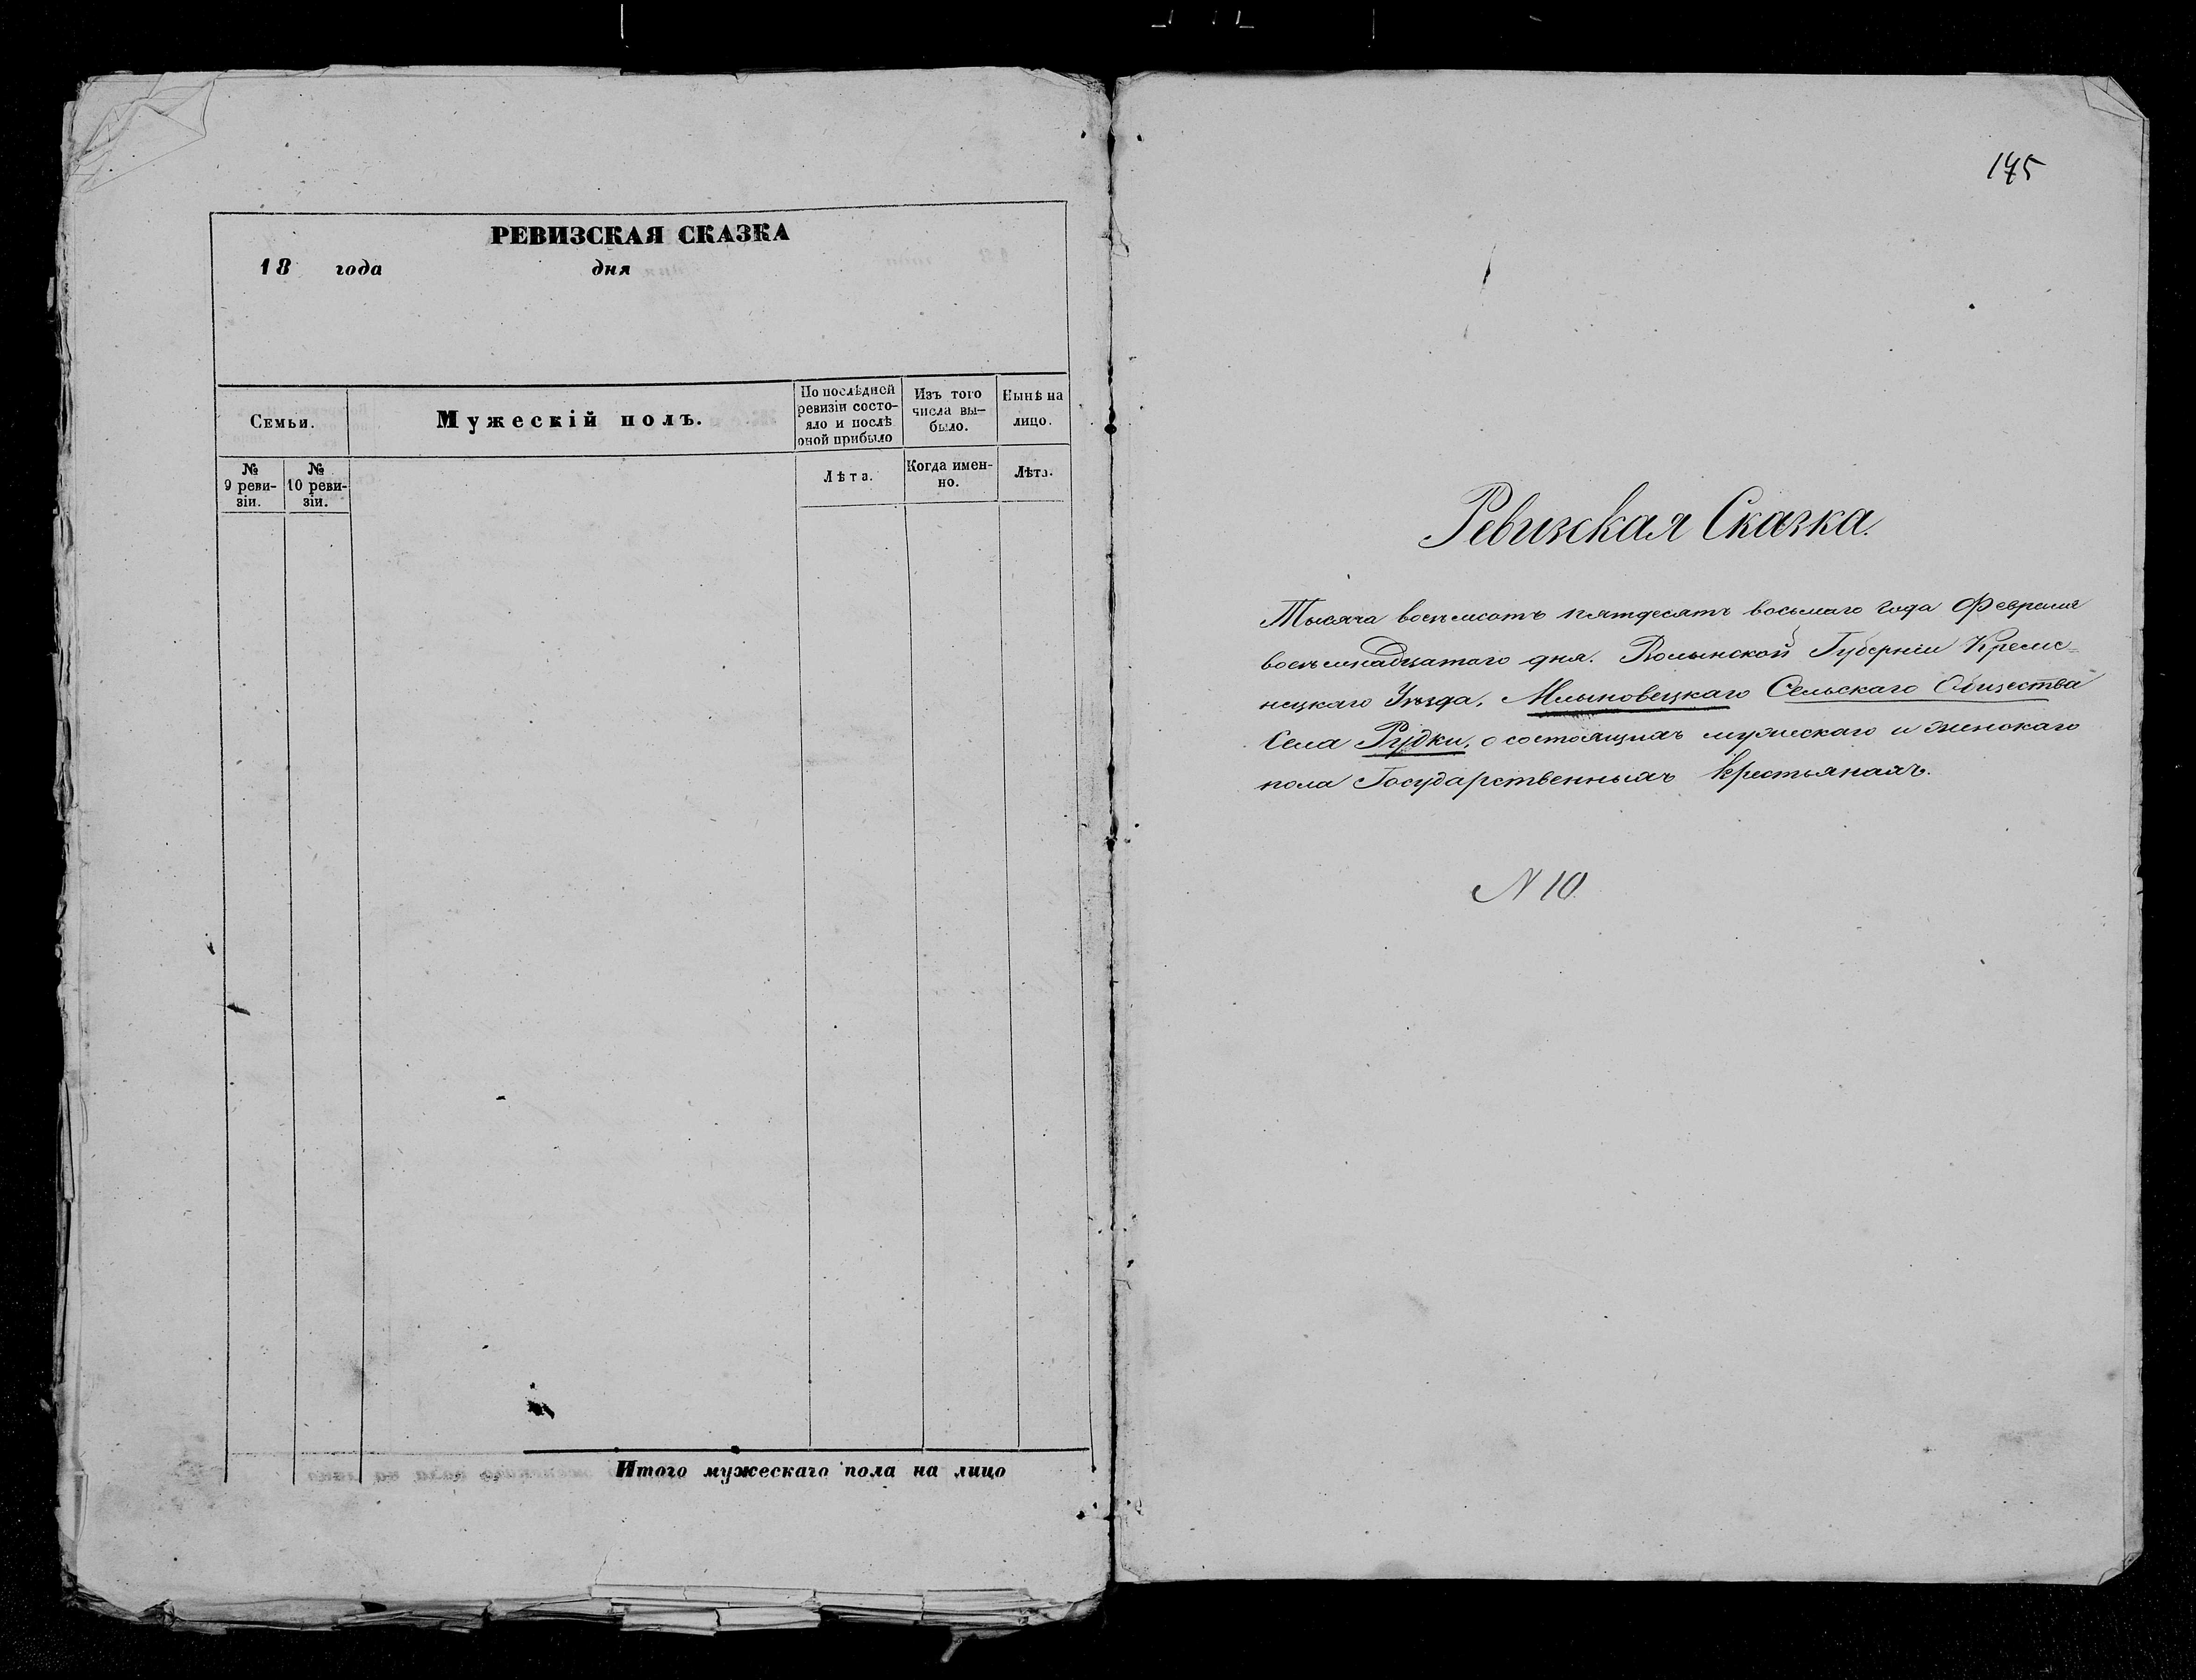 РЕВИЗСКАЯ СКАЗКА
18 года дня
Семьи.
Мужескій полъ.
По послѣдней
ревизіи состо-
яло и послѣ
оной прибыло
Изъ того
числа вы-
было.
Нынѣ на
лицо.
№
9 реви-
зіи.
№
10 реви-
зіи.
Лѣта.
Когда имен-
но.
Лѣта.
Итого мужескаго пола на лицо
175
Ревизская Сказка.
Тысяча восемсотъ пятдесятъ восьмаго года Февраля
восемнадцатаго дня. Волынской Губерніи Креме=
нецкаго Уѣзда, Млыновецкаго Сельскаго Общества
Села Рудки, о состоящихъ мужескаго и женскаго
пола Государственныхъ крестьянахъ.
N 10.